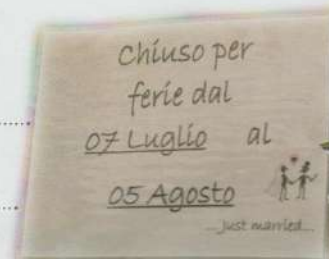 Chiuso per
ferie dal
07 Luglio al
05 Agosto
...Just married...